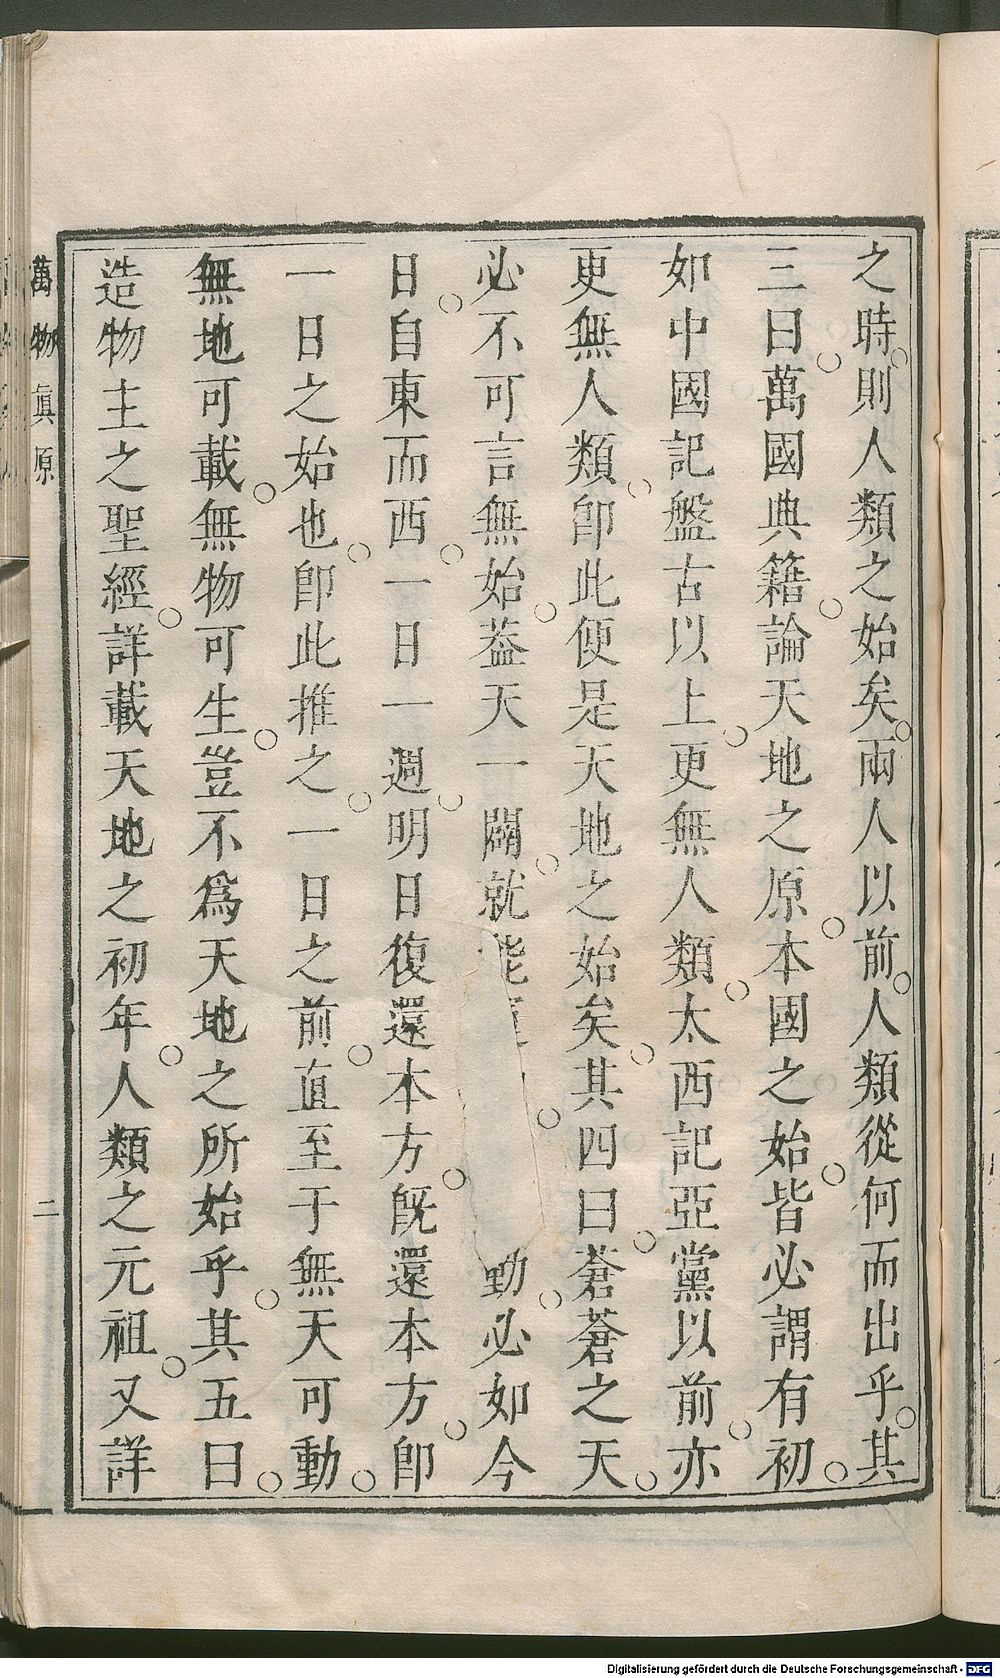 之時則人類之始矣兩人以前人類從何而出乎其
三曰萬國典籍論天地之原本國之始皆必謂有初
如中國記盤古以上更無人類太西記亞黨以前亦
更無人類卽此便是天地之始矣其四曰蒼蒼之天
必不可言無始葢天一闢就能動必如今
日自東而西一日一週明日復還本方旣還本方卽
一日之始也卽此推之一日之前直至于無天可動
無地可載無物可生豈不爲天地之所始乎其五曰
造物主之聖經詳載天地之初年人類之元祖又詳
萬物眞原
二
Digitalisierung gefördert durch die Deutsche Forschungsgemeinschaft - DFG